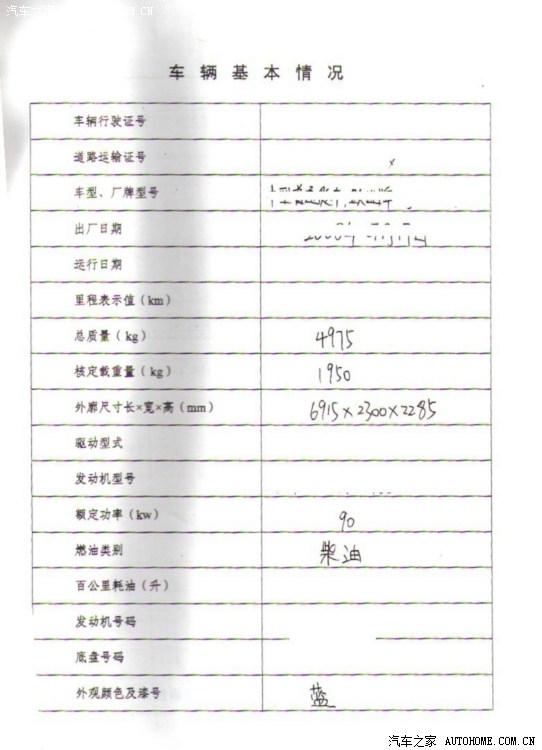 汽车之家 AUTOHOME.COM.CN
车辆基本情况
车辆行驶证号
道路运输证号
车型、厂牌型号
出厂日期
运行日期
里程表示值(km)
总质量(kg) 4975
核定载重量(kg) 1950
外廓尺寸长×宽×高(mm) 6915×2300×2285
驱动型式
发动机型号
额定功率(kw) 90
燃油类别 柴油
百公里耗油(升)
发动机号码
底盘号码
外观颜色及漆号 蓝
汽车之家 AUTOHOME.COM.CN